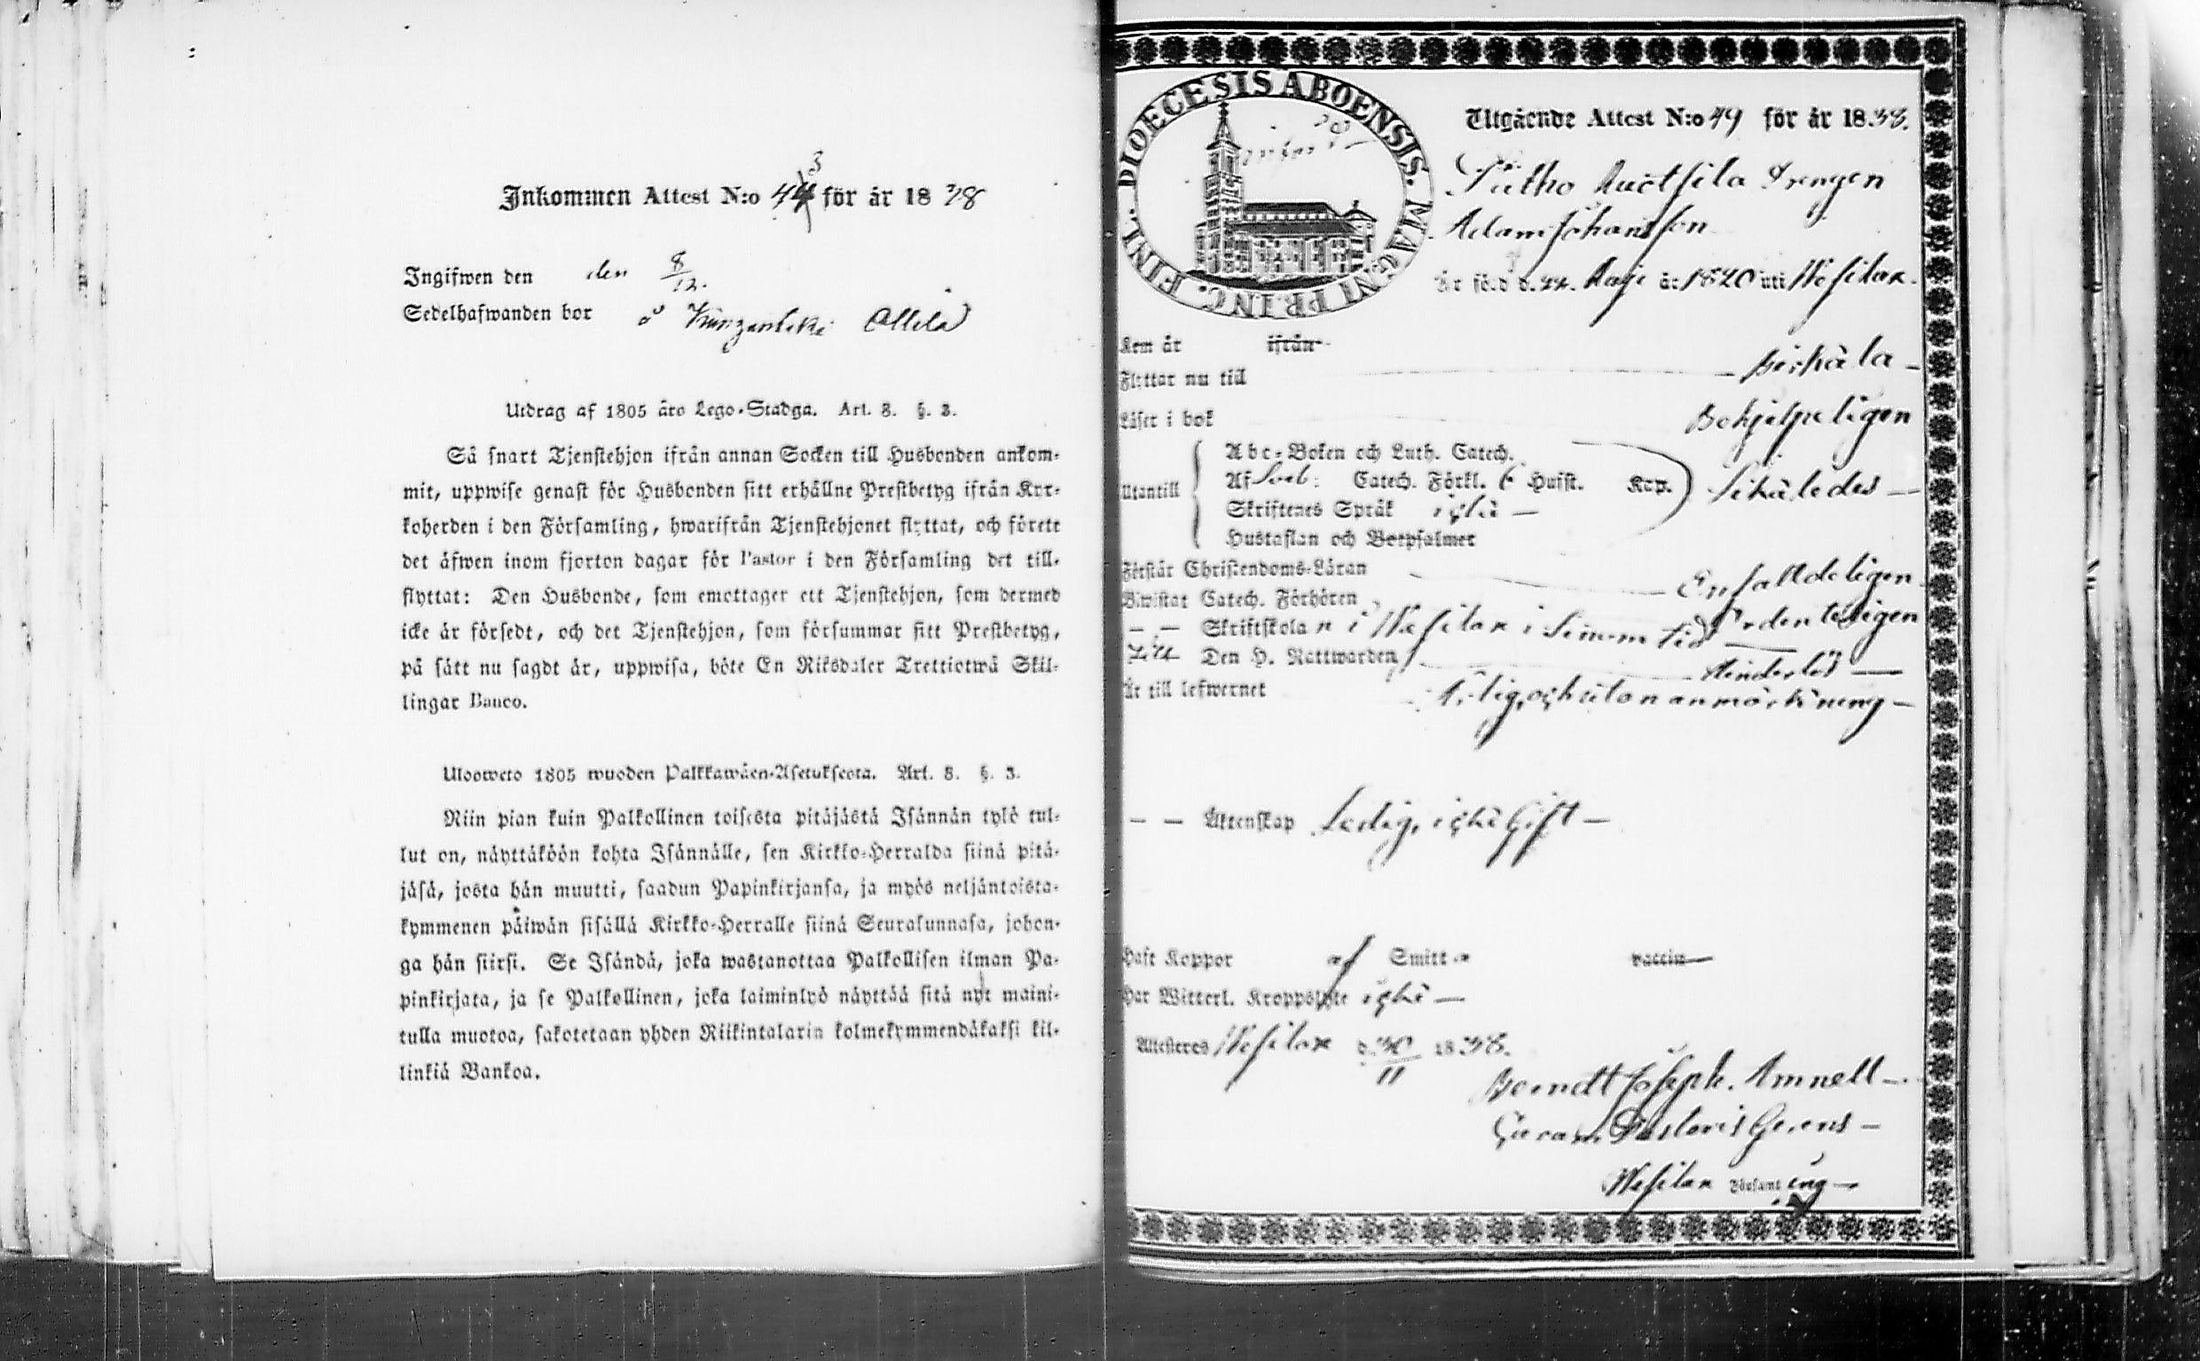 Inkommen Attest N:o 443 för år 1838
Ingifwen den den 8/12.
Sedelhafwanden bor å Attila
Utdrag af 1805 års Lego-Stadga. Art. 8. §. 3.
Så snart Tjenstehjon ifrån annan Socken till Husbonden ankom-
mit, uppwise genast för Husbonden sitt erhållne Prestbetyg ifrån Kyr-
koherden i den Församling, hwarifrån Tjenstehjonet flyttat, och förete
det äfwen inom fjorton dagar för Pastor i den Församling det till-
flyttat: Den Husbonde, som emottager ett Tjenstehjon, som dermed
icke är försedt, och det Tjenstehjon, som försummar sitt Prestbetyg,
på sätt nu sagdt är, uppwisa, böte En Riksdaler Trettiotwå Skil-
lingar Banco.
Ulosweto 1805 wuoden Palkkawäen-Asetuksesta. Art. 8. §. 3.
Niin pian kuin Palkollinen toisesta pitäjästä Isännän tylö tul-
lut on, näyttäköön kohta Isännälle, sen Kirkko-Herralda siinä pitä-
jäsä, josta hän muutti, saadun Papinkirjansa, ja myös neljäntoista-
kymmenen päiwän sisällä Kirkko-Herralle siinä Seurakunnasa, johon-
ga hän siirsi. Se Isändä, joka wastanottaa Palkollisen ilman Pa-
pinkirjata, ja se Palkollinen, joka laiminlyö näyttää sitä nyt maini-
tulla muotoa, sakotetaan yhden Riikintalarin kolmekymmendäkaksi kil-
linkiä Bankoa.
DIOECESIS ABOENSIS. MAGNI PRINC. FINL.
Utgående Attest N:o 49 för år 1838.
Drengen
Adam Johansson
Är född d. 22. Maji år 1820 uti Wesilax.
Kom år ifrån
Flyttar nu till Birkala
Läser i bok Behjelpeligen
Utantill
Abc-Boken och Luth. Catech.
Af Sveb: Catech. Förkl. 6 Hufst. Kap. Likaledes
Skriftenes Språk icke
Hustaflan och Botpsalmer
Förstår Christendoms-Läran Enfalldeligen
Biwistat Catech. Förhören Ordenteligen
Skriftskolan i Wesilax i sinom tid
Till Den H. Nattwarden Hinderlös
Är till lefwernet Ärlig, och utan anmärkning
Äktenskap Ledig, icke Gift
Haft Koppor af Smitta vaccin
Har Witterl. Kroppslyte icke
Attesteras Wesilax d. 30/11 1838.
Berndt Joseph. Amnell
Curam Pastoris Gerens
Wesilax Församling